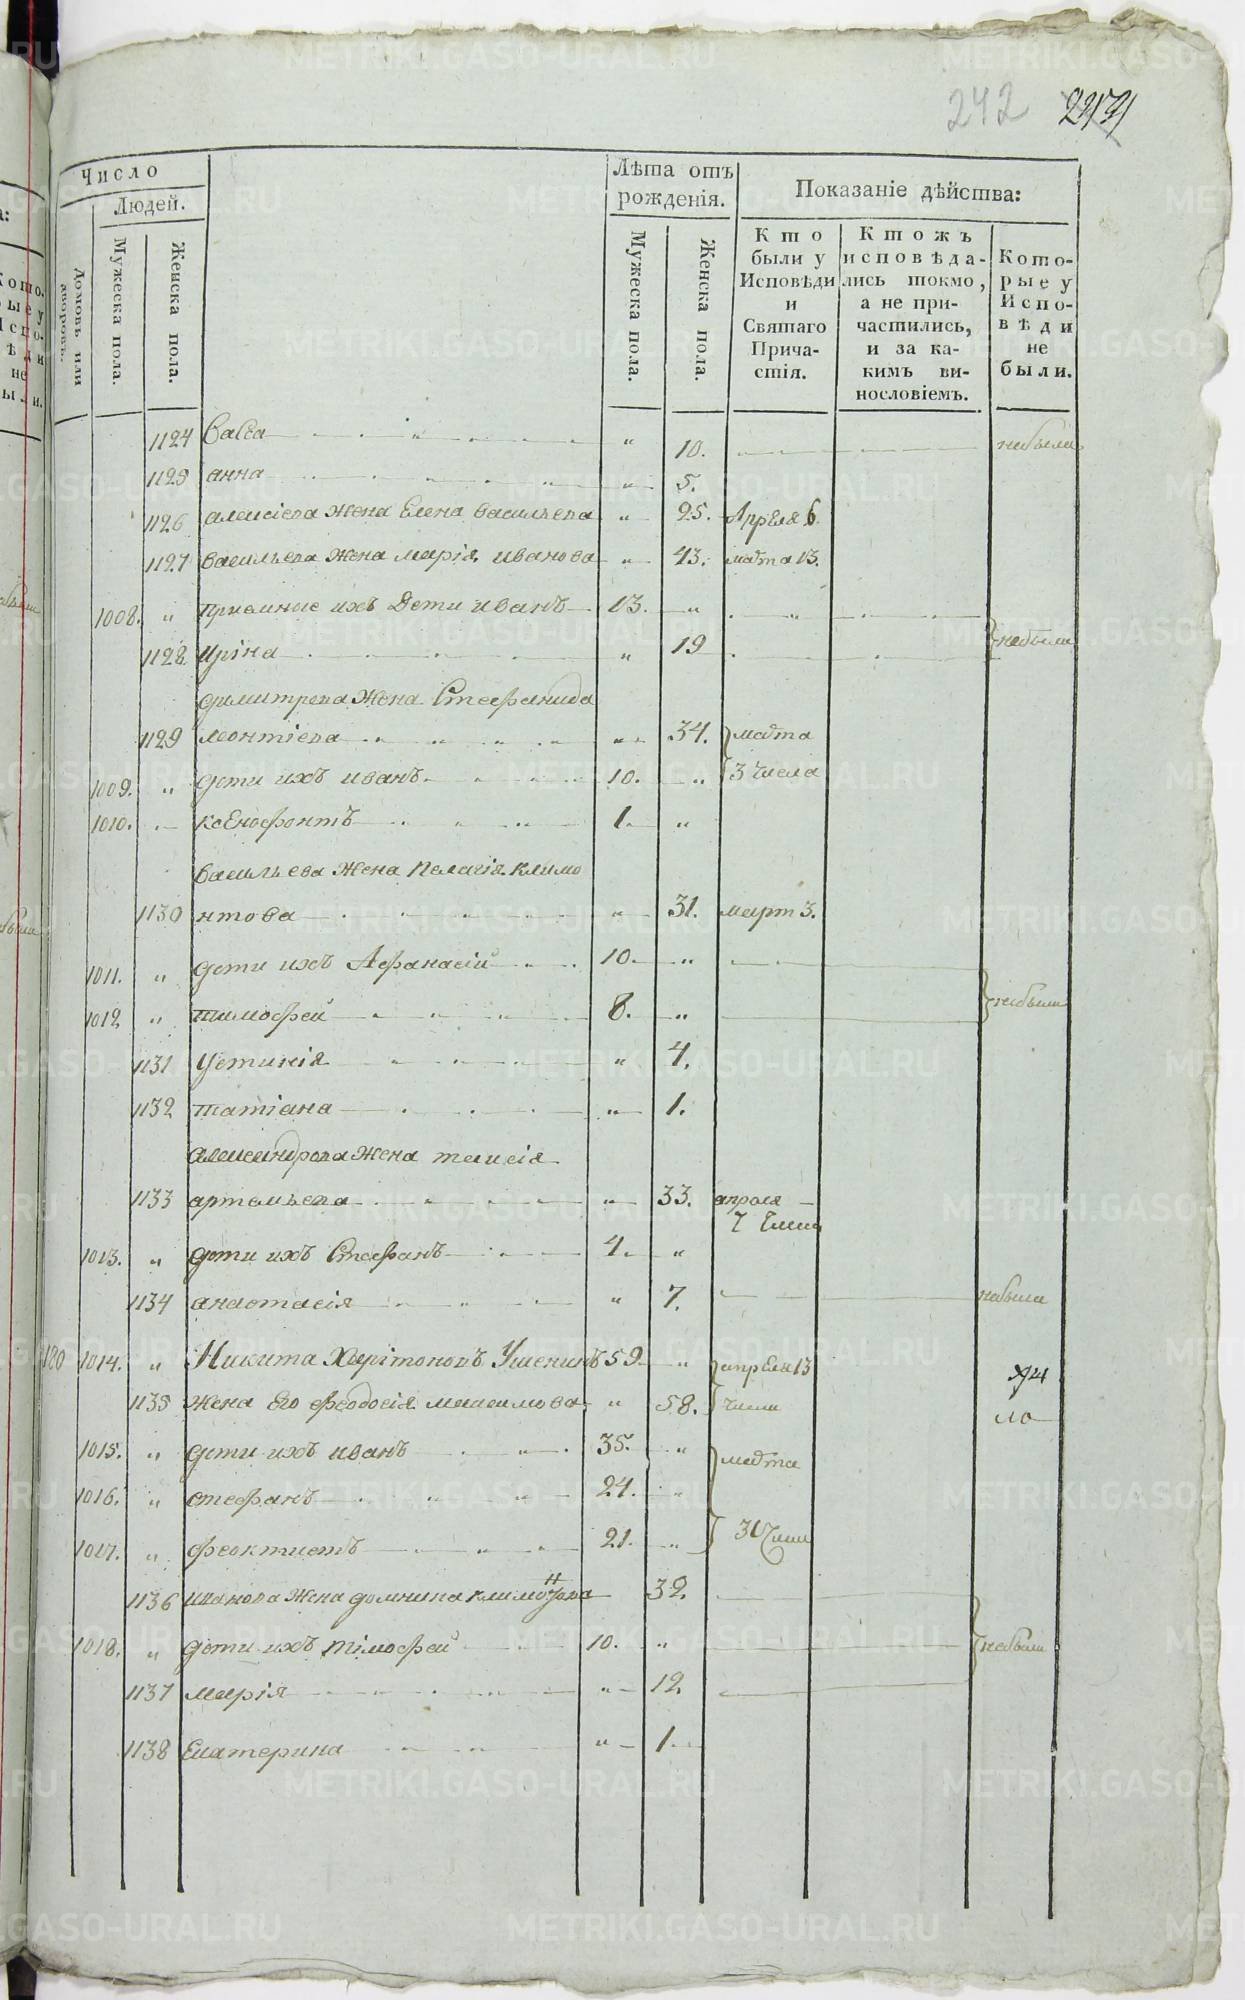 242
Число
Людей.
Домовъ или дворовъ.
Мужеска пола.
Женска пола.
Лѣта отъ рожденія.
Мужеска пола.
Женска пола.
Показаніе дѣйства:
Кто были у Исповѣди и Святаго Прича-стія.
Ктожъ исповѣда-лись токмо, а не при-частились, и за ка-кимъ ви-нословіемъ.
Кото-рые у Испо-вѣди не были.
1124 Васса " 10. небыла
1125 анна " 5.
1126 алексіева жена Елена васильева " 25. Апреля 6.
1127 васильева жена марія иванова " 43. марта 13.
1008. " приемные ихъ Дети иванъ 13. "
1128 Иріна " 19 небыли
димитрева жена Стефанида
1129 леонтіева " 34. марта
1009. " дети ихъ иванъ 10. " 3 числа
1010. ксенофонтъ 1. "
васильева жена пелагія климо
1130 нтова " 31. март 3.
1011. " дети ихъ Афанасій 10. "
1012 " тимофей 8. " небыли
1131 Устинія " 4.
1132 татіана " 1.
александрова жена таисія
1133 артемьева " 33. апреля
7 числа
1013. " дети ихъ Стефанъ 4. "
1134 анастасія " 7. небыла
180 1014. " Никита Харітоновъ Ушенинъ 59. " апреля 13
1135 жена Его феодосія максимова " 58. числа
ло
1015. " дети ихъ иванъ 35. " марта
1016. " стефанъ 24. "
1017. " феоктистъ 21. " 31 числа
1136 иванова жена домнина климонтова 32.
1018. " дети ихъ тімофей 10. " небыли
1137 марія " 12.
1138 Екатерина " 1.
METRIKI.GASO-URAL.RU